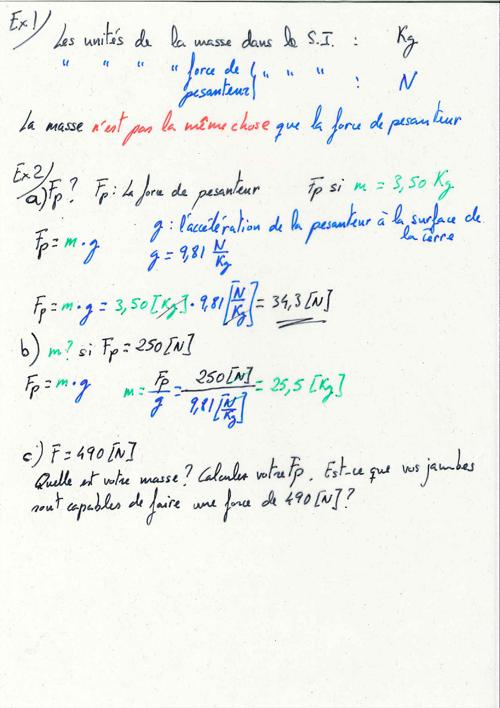 Ex 1/
Les unités de la masse dans le S.I. : Kg
" " " " force de " " " "
pesanteur : N
La masse n'est pas la même chose que la force de pesanteur
Ex 2/
a) Fp? Fp: La force de pesanteur Fp si m = 3,50 Kg
Fp = m · g g : l'accélération de la pesanteur à la surface de
la terre
g = 9,81 N/Kg
Fp = m · g = 3,50 [Kg] · 9,81 [N/Kg] = 34,3 [N]
b) m? si Fp = 250 [N]
Fp = m · g m = Fp/g = 250 [N] / 9,81 [N/Kg] = 25,5 [Kg]
c) F = 490 [N]
Quelle est votre masse? Calculer votre Fp. Est-ce que vos jambes
sont capables de faire une force de 490 [N]?